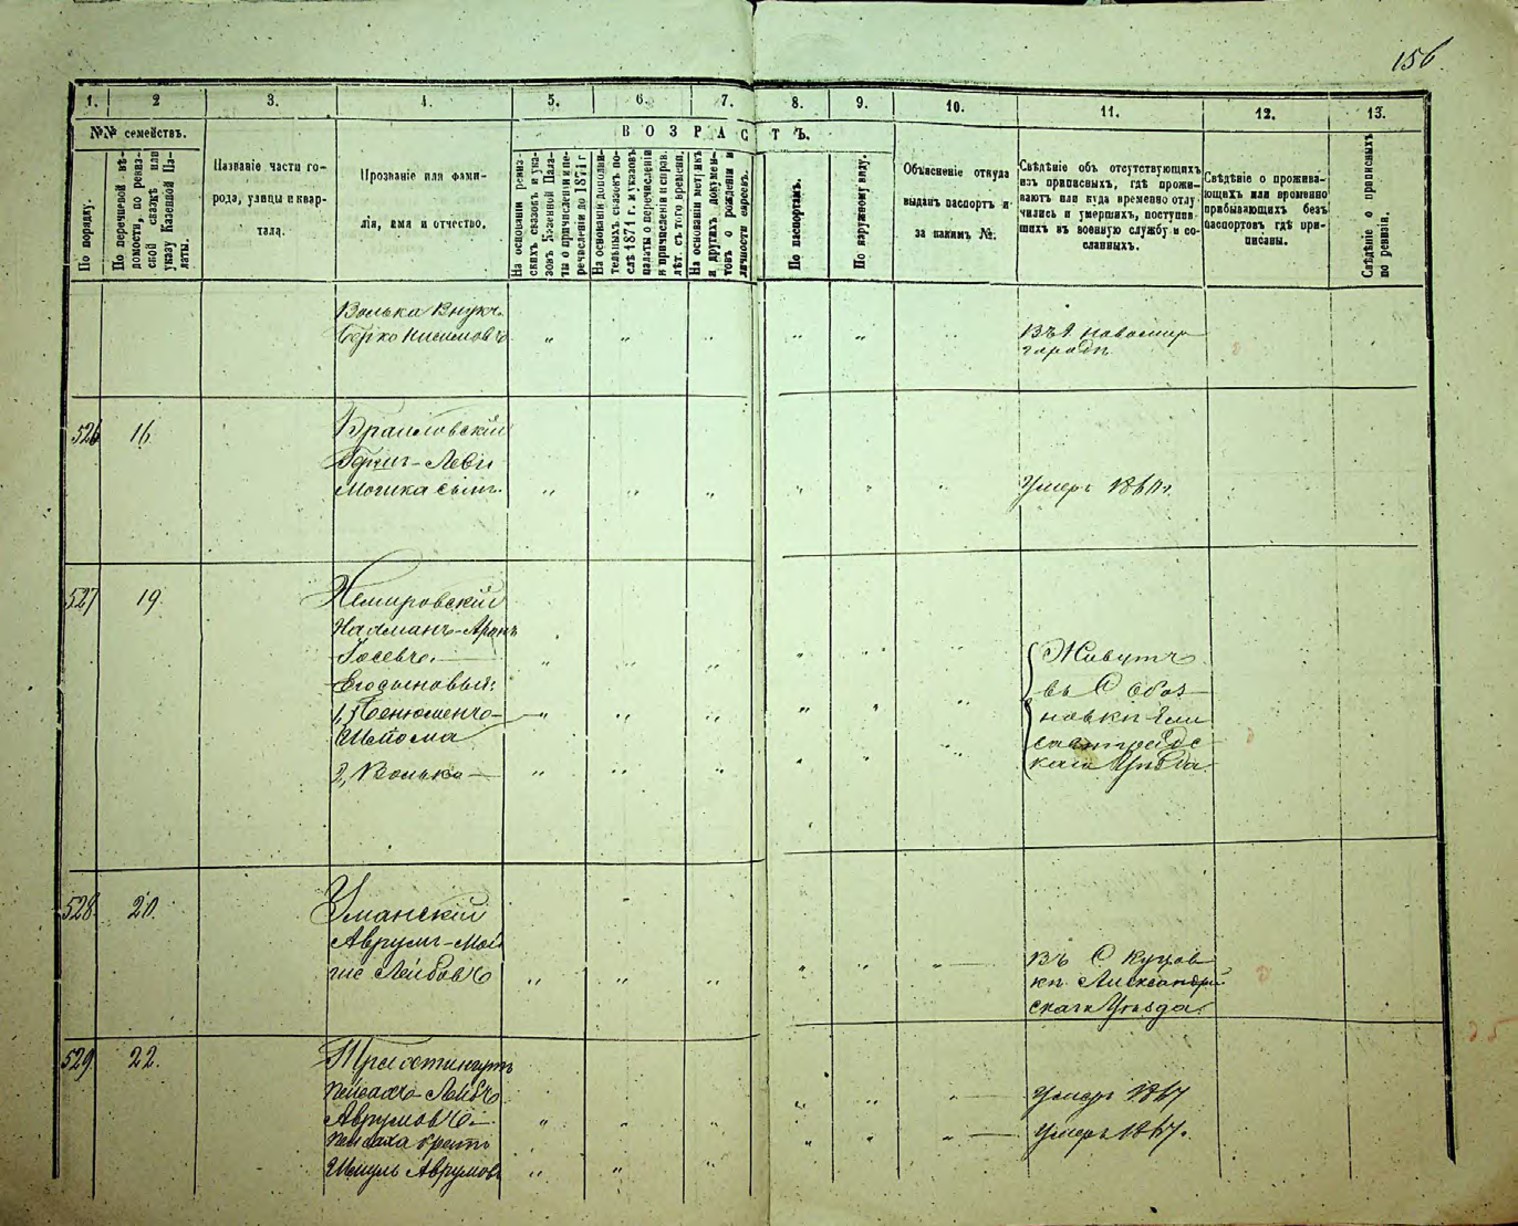 156
1. 2 3. 4. 5. 6. 7. 8. 9. 10. 11. 12. 13.
№№ семействъ.
ВОЗРАСТЪ.
По порядку.
По перечневой вѣ-
домости, по ревиз-
ской сказкѣ или
указу Казенной Па-
латы.
Названіе части го-
рода, улицы и квар-
тала.
Прозваніе или фами-
лія, имя и отчество.
На основаніи ревиз-
скихъ сказокъ и ука-
зовъ Казенной Пала-
ты о причисленіи и пе-
речисленіи до 1871 г
На основаніи дополни-
тельныхъ сказокъ по-
слѣ 1871 г. и указовъ
палаты о перечисленіи
и причисленіи исправ.
лѣт. съ того времени.
На основаніи метрикъ
и другихъ докумен-
товъ о рожденіи и
личности евреевъ.
По паспортамъ.
По наружному виду.
Объясненіе откуда
выданъ паспортъ и
за какимъ №.
Свѣдѣніе объ отсутствующихъ
изъ приписныхъ, гдѣ прожи-
ваютъ или куда временно отлу
чились и умершихъ, поступив
шихъ въ военную службу и со-
сланныхъ.
Свѣдѣніе о прожива-
ющихъ или временно
прибывающихъ безъ
паспортовъ гдѣ при-
писаны.
Свѣдѣніе о приписныхъ
по ревизіи.
Волька Внукъ.
Берко Нисимовъ " " " " " Въ Г. Новомир
городѣ
526 16. Браиловскій
Герш-Леви
Мошка сынъ. " " " " " " Умеръ
527 19. Немировскій
Нахманъ-Аронъ
Іосевъ. " " " " " Живутъ
въ С
1, " " " " " "
Шлиома
2, Волько " " " "
каго Уѣзда.
528 20. Уманскій
Аврумъ-Мой
Лейбовъ " " " " " " Въ С
Александрій
скаго Уѣзда.
529 22.
Пейсахъ-Лейбъ " " " Умеръ 1867
Аврумовъ " " "
Пейсаха братъ " " " Умеръ 1867.
Шмуль Аврумовъ " " "